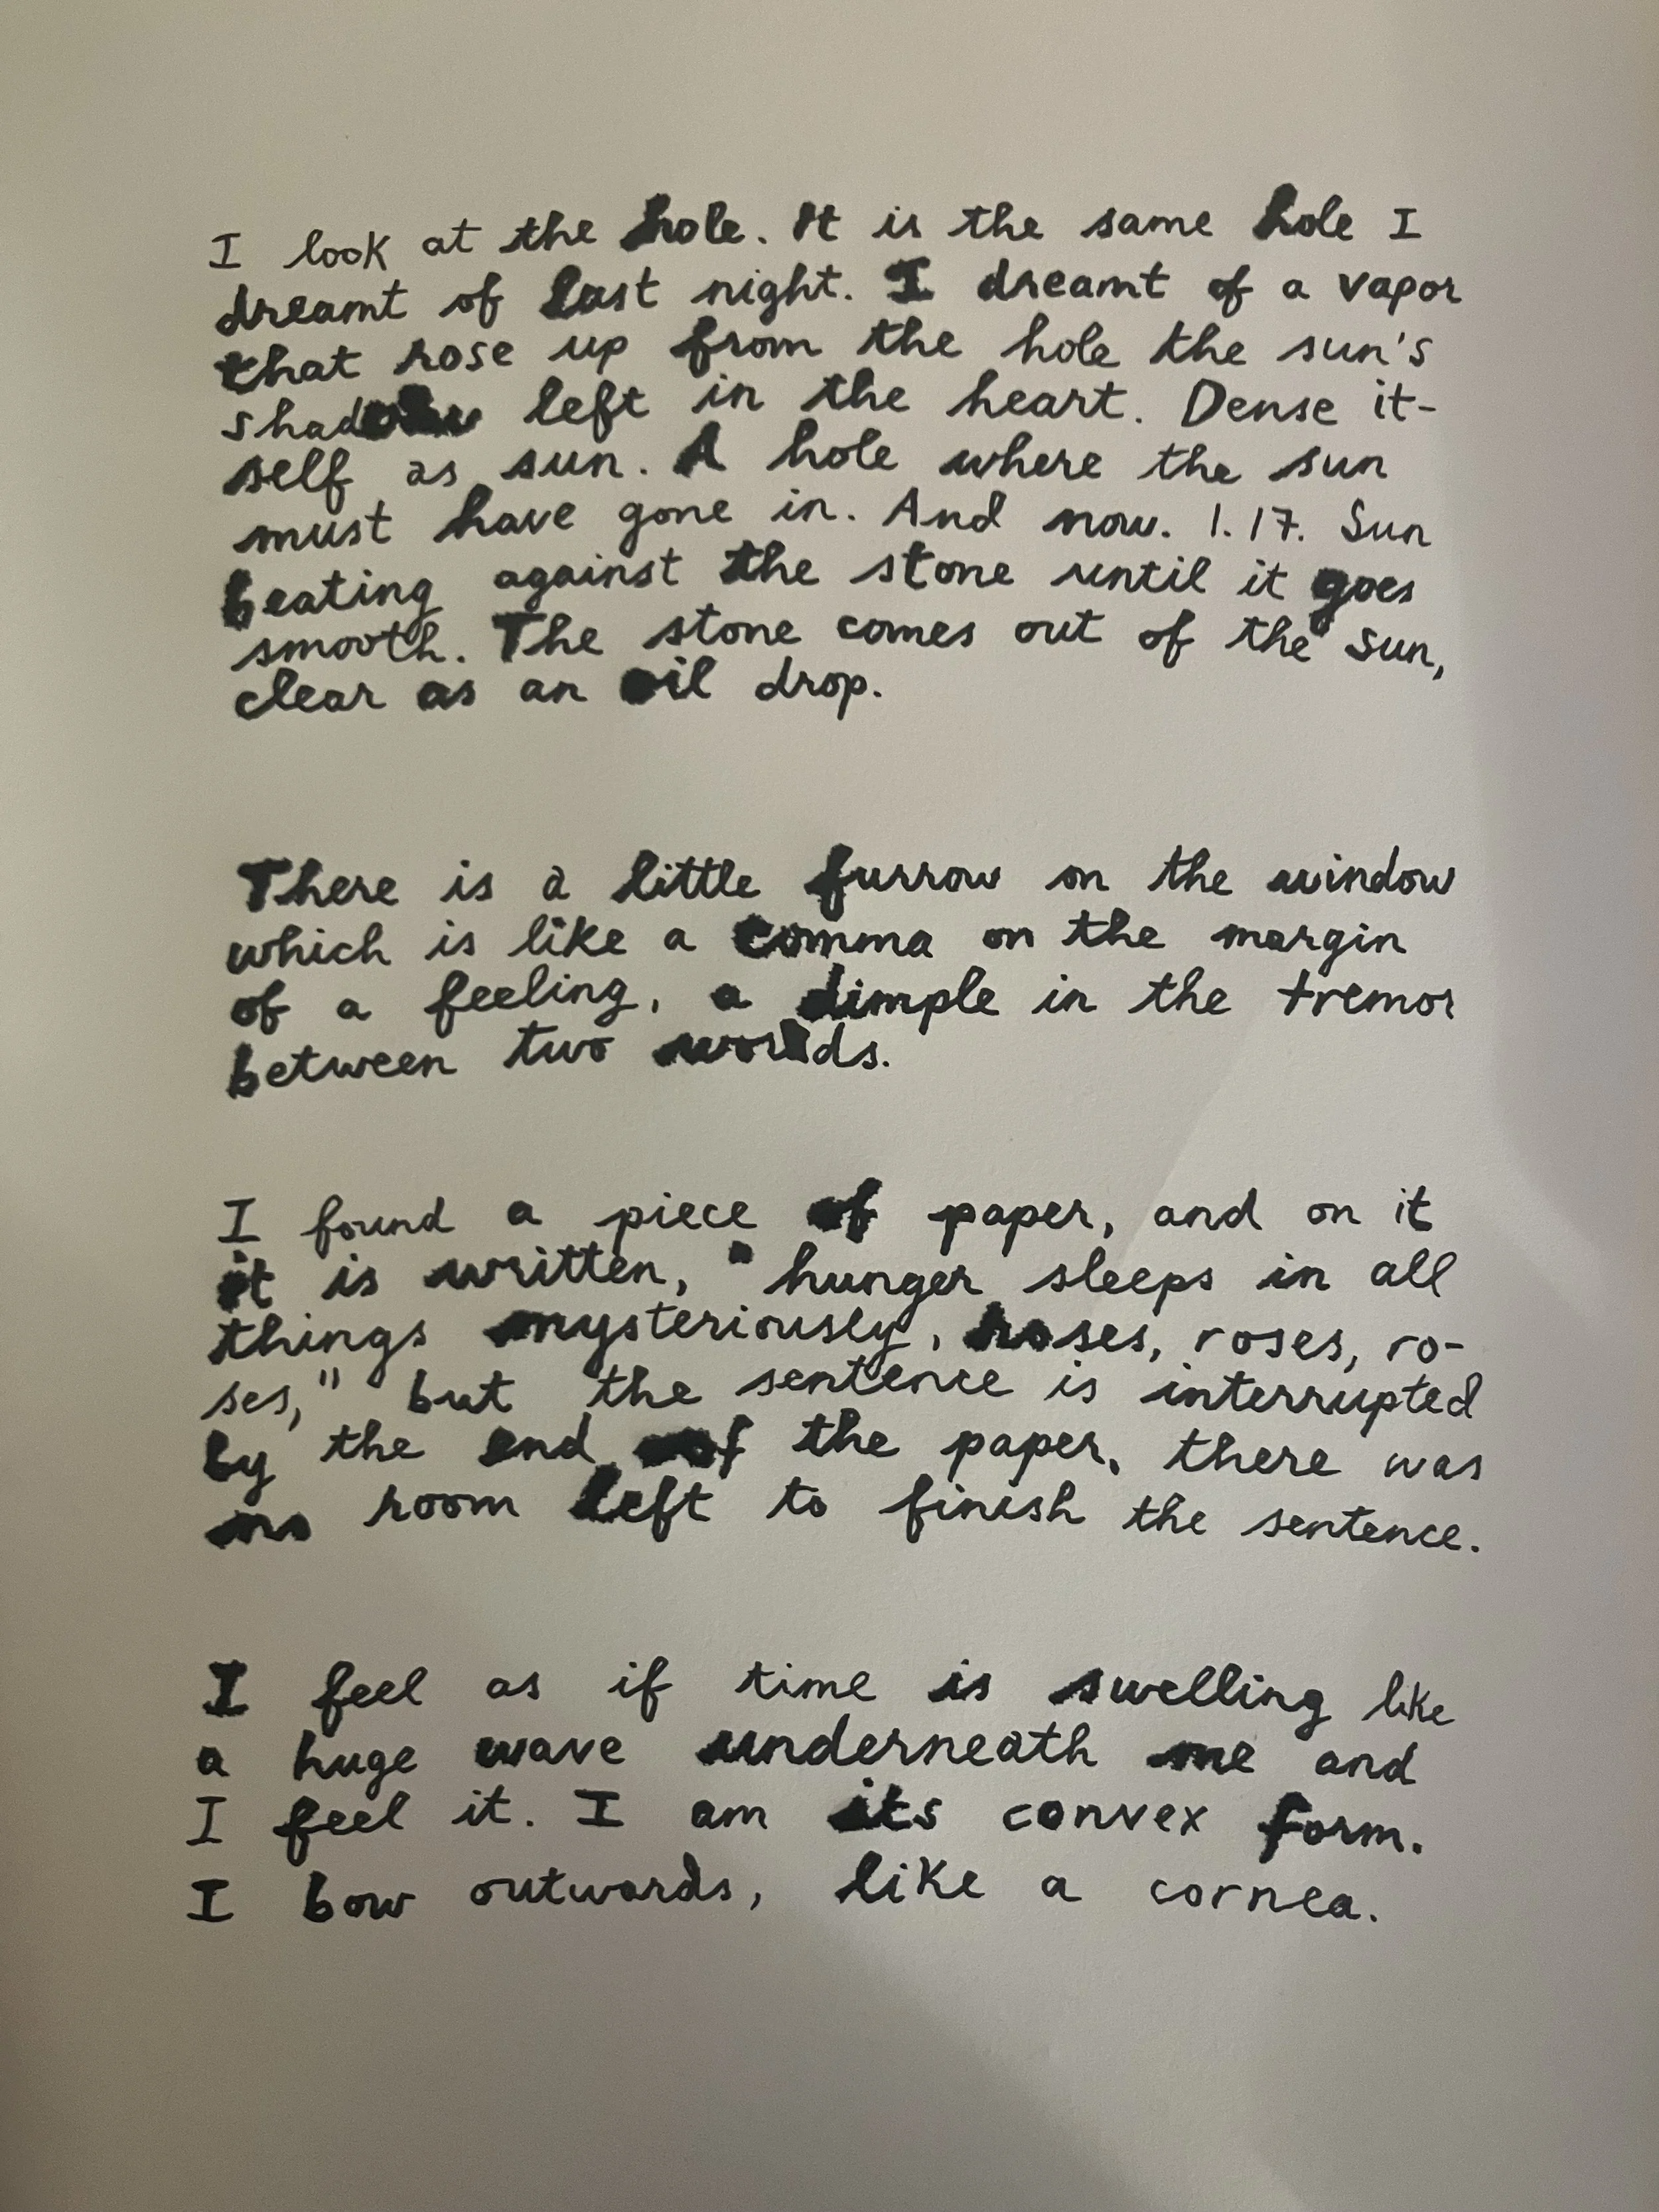 I look at the hole. It is the same hole I
dreamt of last night. I dreamt of a vapor
that rose up from the hole the sun's
shadow left in the heart. Dense it-
self as sun. A hole where the sun
must have gone in. And now. 1.17. Sun
beating against the stone until it goes
smooth. The stone comes out of the sun,
clear as an oil drop.
There is a little furrow on the window
which is like a comma on the margin
of a feeling, a dimple in the tremor
between two
I found a piece of paper, and on it
it is written, "hunger sleeps in all
things mysteriously, roses, roses, ro-
ses," but the sentence is interrupted
by the end of the paper, there was
no room left to finish the sentence.
I feel as if time is swelling like
a huge wave underneath me and
I feel it. I am its convex form.
I bow outwards, like a cornea.